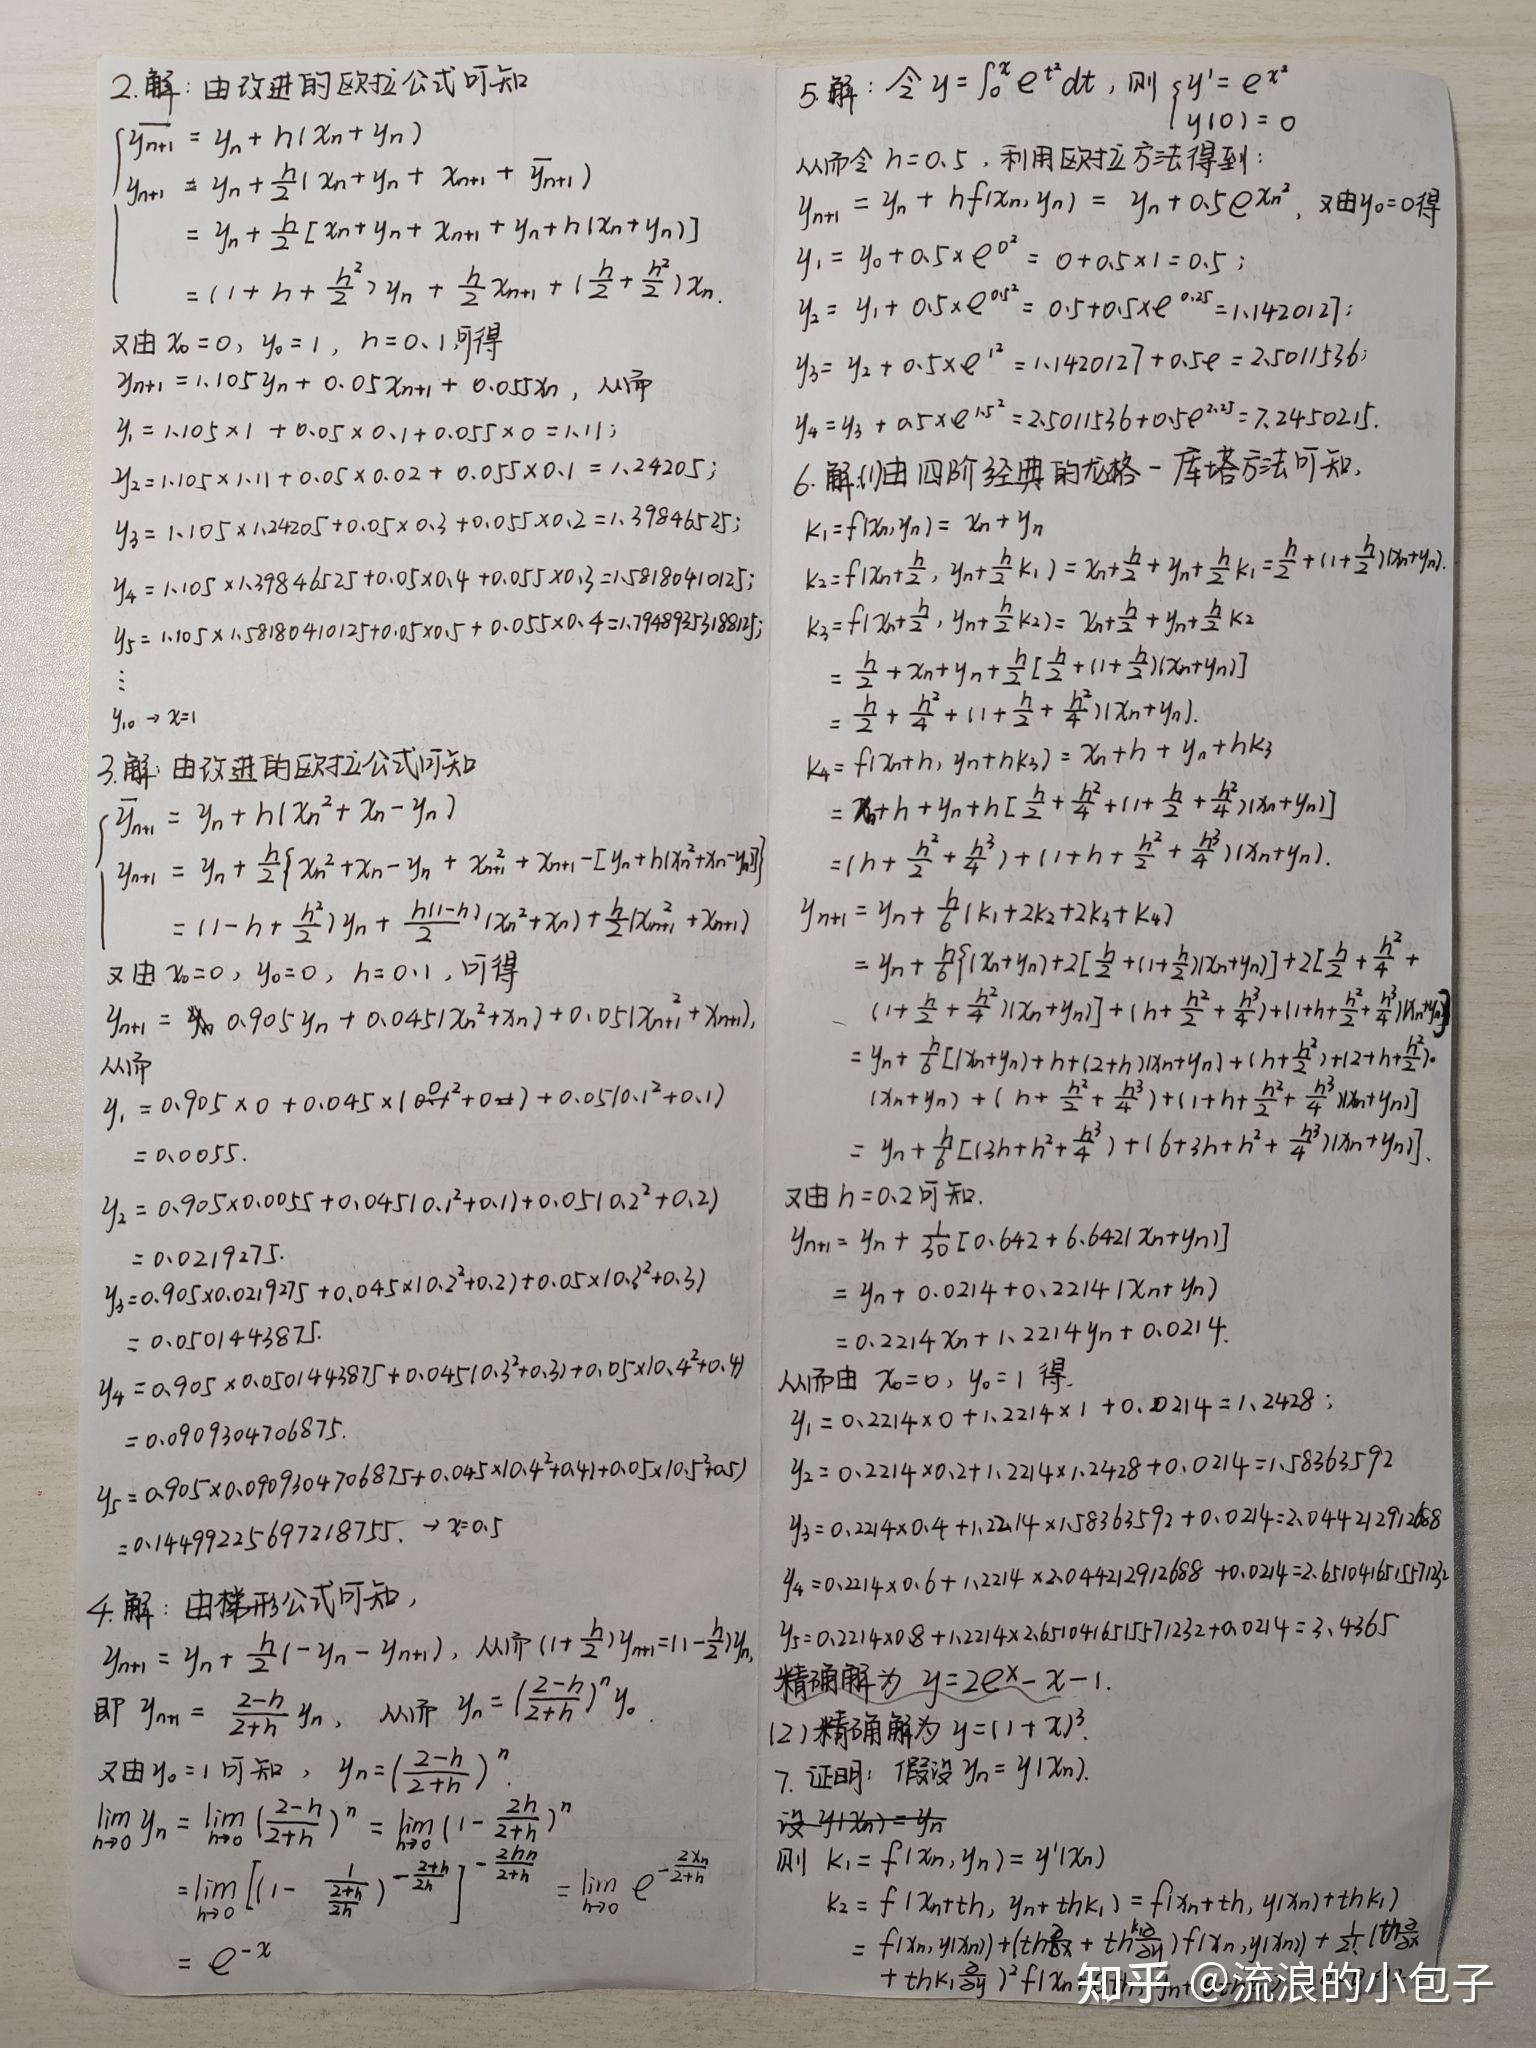 2.解：由改进的欧拉公式可知
ȳn+1 = yn + h(xn + yn)
yn+1 = yn + h/2 (xn + yn + xn+1 + ȳn+1)
= yn + h/2 [xn + yn + xn+1 + yn + h(xn + yn)]
= (1 + h + h²/2) yn + h/2 xn+1 + (h/2 + h²/2) xn.
又由 x0 = 0, y0 = 1, h = 0.1,可得
yn+1 = 1.105yn + 0.05xn+1 + 0.055xn, 从而
y1 = 1.105×1 + 0.05×0.1 + 0.055×0 = 1.11;
y2 = 1.105×1.11 + 0.05×0.02 + 0.055×0.1 = 1.24205;
y3 = 1.105×1.24205 + 0.05×0.3 + 0.055×0.2 = 1.39846525;
y4 = 1.105×1.39846525 + 0.05×0.4 + 0.055×0.3 = 1.58180410125;
y5 = 1.105×1.58180410125 + 0.05×0.5 + 0.055×0.4 = 1.79489353188125;
⋮
y10 → x=1
3.解：由改进的欧拉公式可知
ȳn+1 = yn + h(xn² + xn - yn)
yn+1 = yn + h/2 {xn² + xn - yn + xn+1² + xn+1 - [yn + h(xn² + xn - yn)]}
= (1 - h + h²/2) yn + h(1-h)/2 (xn² + xn) + h/2 (xn+1² + xn+1)
又由 x0 = 0, y0 = 0, h = 0.1, 可得
yn+1 = 0.905yn + 0.045(xn² + xn) + 0.05(xn+1² + xn+1),
从而
y1 = 0.905×0 + 0.045×(0² + 0) + 0.05(0.1² + 0.1)
= 0.0055.
y2 = 0.905×0.0055 + 0.045(0.1² + 0.1) + 0.05(0.2² + 0.2)
= 0.0219275.
y3 = 0.905×0.0219275 + 0.045×(0.2² + 0.2) + 0.05×(0.3² + 0.3)
= 0.0501443875.
y4 = 0.905×0.0501443875 + 0.045(0.3² + 0.3) + 0.05×(0.4² + 0.4)
= 0.0909304706875.
y5 = 0.905×0.0909304706875 + 0.045×(0.4² + 0.4) + 0.05×(0.5² + 0.5)
= 0.14499225697218755. → x=0.5
4.解：由梯形公式可知,
yn+1 = yn + h/2 (-yn - yn+1), 从而 (1 + h/2) yn+1 = (1 - h/2) yn,
即 yn+1 = (2-h)/(2+h) yn, 从而 yn = ((2-h)/(2+h))ⁿ y0.
又由 y0 = 1 可知, yn = ((2-h)/(2+h))ⁿ.
lim h→0 yn = lim h→0 ((2-h)/(2+h))ⁿ = lim h→0 (1 - 2h/(2+h))ⁿ
= lim h→0 [(1 - 1/((2+h)/2h))^(-(2+h)/2h)]^(-2hn/(2+h)) = lim h→0 e^(-2xn/(2+h))
= e^(-x)
5.解：令 y = ∫₀ˣ e^(t²) dt, 则 { y' = e^(x²)
y(0) = 0
从而令 h = 0.5, 利用欧拉方法得到：
yn+1 = yn + hf(xn, yn) = yn + 0.5e^(xn²), 又由 y0 = 0 得
y1 = y0 + 0.5×e^(0²) = 0 + 0.5×1 = 0.5;
y2 = y1 + 0.5×e^(0.5²) = 0.5 + 0.5×e^(0.25) = 1.1420127;
y3 = y2 + 0.5×e^(1²) = 1.1420127 + 0.5e = 2.5011536;
y4 = y3 + 0.5×e^(1.5²) = 2.5011536 + 0.5e^(2.25) = 7.2450215.
6.解:(1)由四阶经典的龙格-库塔方法可知,
k1 = f(xn, yn) = xn + yn
k2 = f(xn + h/2, yn + h/2 k1) = xn + h/2 + yn + h/2 k1 = h/2 + (1 + h/2)(xn + yn).
k3 = f(xn + h/2, yn + h/2 k2) = xn + h/2 + yn + h/2 k2
= h/2 + xn + yn + h/2 [h/2 + (1 + h/2)(xn + yn)]
= h/2 + h²/4 + (1 + h/2 + h²/4)(xn + yn).
k4 = f(xn + h, yn + hk3) = xn + h + yn + hk3
= xn + h + yn + h[h/2 + h²/4 + (1 + h/2 + h²/4)(xn + yn)]
= (h + h²/2 + h³/4) + (1 + h + h²/2 + h³/4)(xn + yn).
yn+1 = yn + h/6 (k1 + 2k2 + 2k3 + k4)
= yn + h/6 {(xn + yn) + 2[h/2 + (1 + h/2)(xn + yn)] + 2[h/2 + h²/4 +
(1 + h/2 + h²/4)(xn + yn)] + (h + h²/2 + h³/4) + (1 + h + h²/2 + h³/4)(xn + yn)}
= yn + h/6 [(xn + yn) + h + (2 + h)(xn + yn) + (h + h²/2) + (2 + h + h²/2)·
(xn + yn) + (h + h²/2 + h³/4) + (1 + h + h²/2 + h³/4)(xn + yn)]
= yn + h/6 [(3h + h² + h³/4) + (6 + 3h + h² + h³/4)(xn + yn)].
又由 h = 0.2 可知.
yn+1 = yn + 1/30 [0.642 + 6.642(xn + yn)]
= yn + 0.0214 + 0.2214(xn + yn)
= 0.2214xn + 1.2214yn + 0.0214.
从而由 x0 = 0, y0 = 1 得.
y1 = 0.2214×0 + 1.2214×1 + 0.0214 = 1.2428;
y2 = 0.2214×0.2 + 1.2214×1.2428 + 0.0214 = 1.58363592
y3 = 0.2214×0.4 + 1.2214×1.58363592 + 0.0214 = 2.044212912688
y4 = 0.2214×0.6 + 1.2214×2.044212912688 + 0.0214 = 2.6510416515571232
y5 = 0.2214×0.8 + 1.2214×2.6510416515571232 + 0.0214 = 3.4365
精确解为 y = 2eˣ - x - 1.
(2)精确解为 y = (1 + x)³.
7. 证明：假设 yn = y(xn).
设 y(xn) = yn
则 k1 = f(xn, yn) = y'(xn)
k2 = f(xn + th, yn + thk1) = f(xn + th, y(xn) + thk1)
= f(xn, y(xn)) + (th ∂/∂x + thk1 ∂/∂y) f(xn, y(xn)) + 1/2! (th ∂/∂x
+ thk1 ∂/∂y)² f(xn
知乎 @流浪的小包子